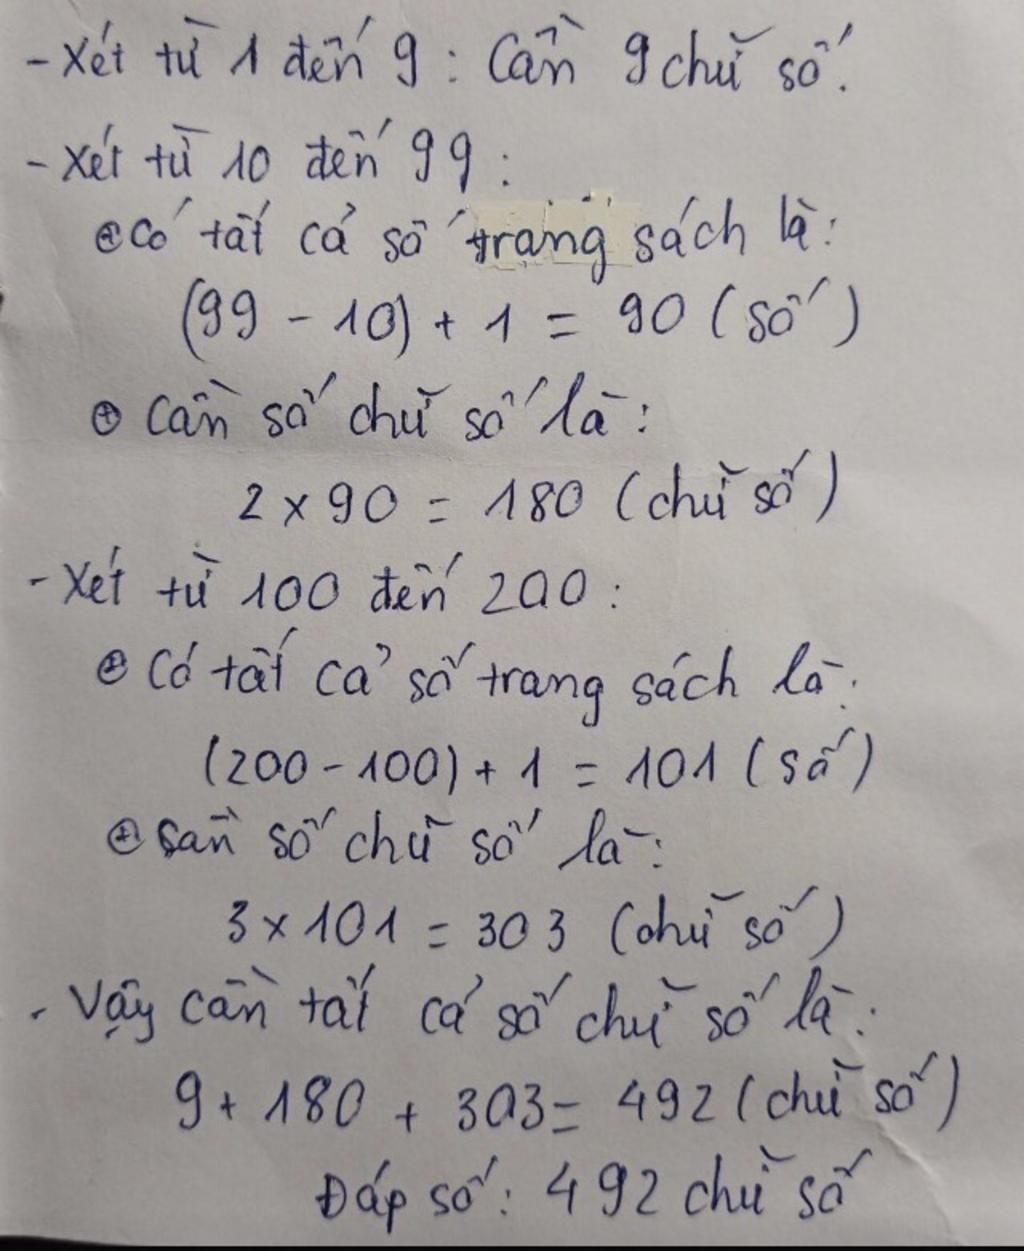 - Xét từ 1 đến 9 : Cần 9 chữ số.
- Xét từ 10 đến 99 :
⊕ Có tất cả số trang sách là :
(99 - 10) + 1 = 90 ( số )
⊕ Cần số chữ số là :
2 x 90 = 180 ( chữ số )
- Xét từ 100 đến 200 :
⊕ Có tất cả số trang sách là :
(200 - 100) + 1 = 101 ( số )
⊕ Cần số chữ số là :
3 x 101 = 303 ( chữ số )
- Vậy cần tất cả số chữ số là :
9 + 180 + 303 = 492 ( chữ số )
Đáp số : 492 chữ số